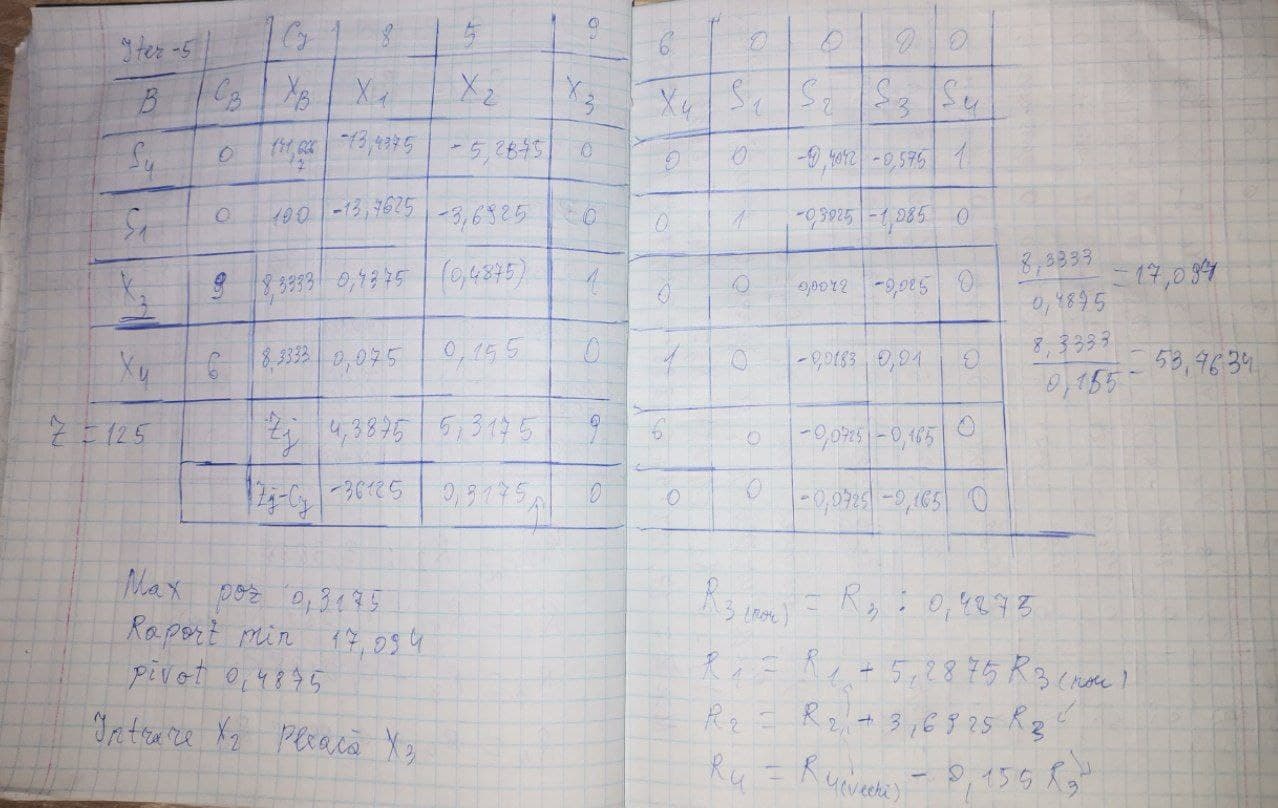 Iter-5 Cj 8 5 9 6 0 0 0 0
B CB XB X1 X2 X3 X4 S1 S2 S3 S4
S4 0 141,6667 -13,4375 -5,2875 0 0 0 -0,4042 -0,575 1
S1 0 100 -13,7625 -3,6925 0 0 1 -0,3025 -1,085 0
X3 9 8,3333 0,4375 (0,4875) 1 0 0 0,0042 -0,025 0
8,3333
0,4875 = 17,094
X4 6 8,3333 0,075 0,155 0 1 0 -0,0183 0,01 0
8,3333
0,155 = 53,7634
Z = 125 Zj 4,3875 5,3175 9 6 0 -0,0725 -0,165 0
Zj-Cj -36125 0,3175 0 0 0 -0,0725 -0,165 0
Max poz 0,3175
Raport min 17,094
pivot 0,4875
Intrare X2 pleacă X3
R3(nou) = R3 : 0,4875
R1 = R1 + 5,2875 R3(nou)
R2 = R2 + 3,6925 R3
R4 = R4(vechi) - 0,155 R3